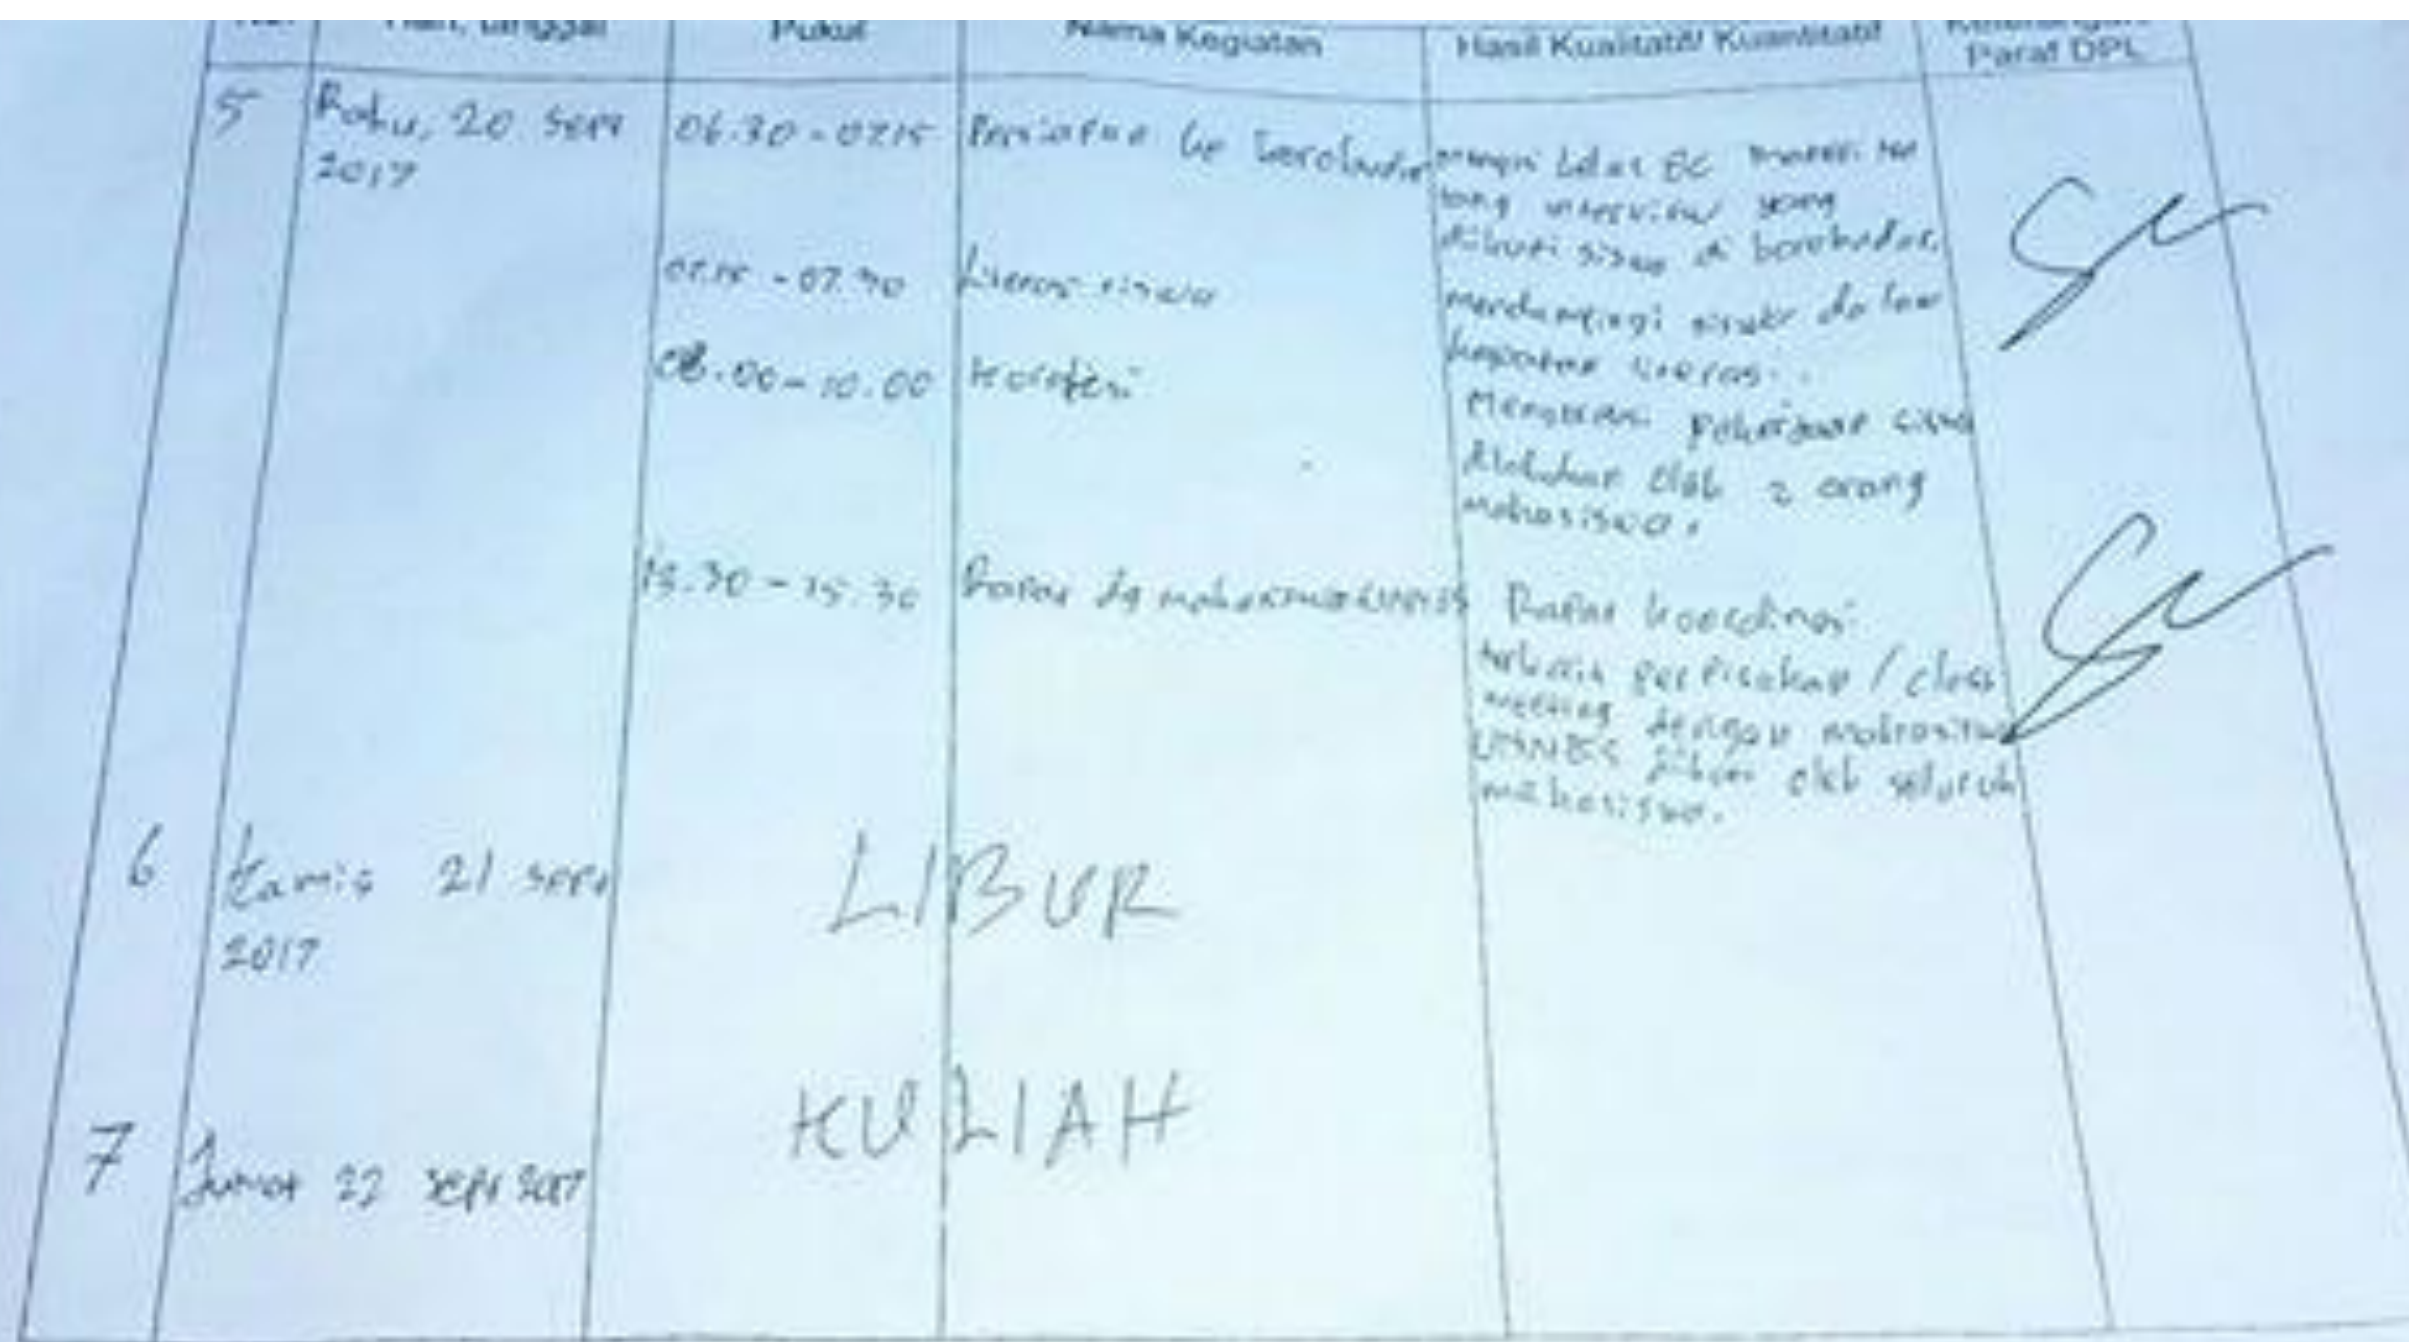 Hari, tanggal
Pukul
Nama Kegiatan
Hasil Kualitatif/ Kuantitatif
Paraf DPL
5
Rabu, 20 sept
2017
06.30 - 07.15
Persiapan ke borobudur
kelas 8C
yang
diikuti siswa di borobudur.
07.15 - 07.30
Literasi siswa
mendampingi siswa dalam
kegiatan literasi.
08.00 - 10.00
Koreksi
Mengoreksi pekerjaan siswa
dilakukan oleh 2 orang
mahasiswa.
13.30 - 15.30
Rapat dg mahasiswa UNNES
Rapat koordinasi
terkait perpisahan / class
meeting dengan mahasiswa
UNNES diikuti oleh seluruh
mahasiswa.
6
Kamis 21 sept
2017
LIBUR
7
Jumat 22 sept 2017
KULIAH